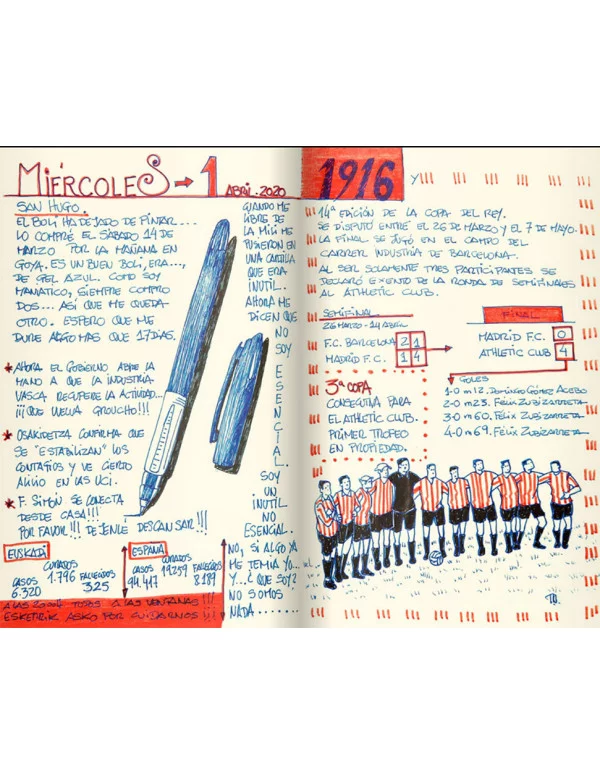 MIÉRCOLES → 1 ABRIL. 2020
SAN HUGO.
EL BOLI HA DEJADO DE PINTAR...
LO COMPRÉ EL SÁBADO 14 DE
MARZO POR LA MAÑANA EN
GOYA. ES UN BUEN BOLI, ERA...,
DE GEL AZUL. COMO SOY
MANIÁTICO, SIEMPRE COMPRO
DOS... ASÍ QUE ME QUEDA
OTRO. ESPERO QUE ME
DURE ALGO MÁS QUE 17 DÍAS.
* AHORA EL GOBIERNO ABRE LA
MANO A QUE LA INDUSTRIA
VASCA RECUPERE LA ACTIVIDAD...
¡¡¡ QUE VUELVA GROUCHO!!!
* OSAKIDETZA CONFIRMA QUE
SE "ESTABILIZAN" LOS
CONTAGIOS Y VE CIERTO
ALIVIO EN LAS UCI.
* F. SIMÓN SE CONECTA
DESDE CASA!!!
POR FAVOR!!! DEJENLE DESCANSAR!!!
EUSKADI
CASOS
6.320
CURADOS
1.796
FALLECIDOS
325
ESPAÑA
CASOS
94.417
CURADOS
19259
FALLECIDOS
8.189
A LAS 20:00H TODOS A LAS VENTANAS!!!
ESKERRIK ASKO POR CUIDARNOS!!!
CUANDO ME
LIBRÉ DE
LA MILI ME
PUSIERON EN
UNA CARTILLA
QUE ERA
INUTIL.
AHORA ME
DICEN QUE
NO
SOY
ESENCIAL.
SOY
UN
INUTIL
NO
ESENCIAL.
NO, SI ALGO YA
ME TEMÍA YO...
Y...¿ QUE SOY?
NO SOMOS
NADA........
1916 Y
14ª EDICIÓN DE LA COPA DEL REY.
SE DISPUTÓ ENTRE EL 26 DE MARZO Y EL 7 DE MAYO.
LA FINAL SE JUGÓ EN EL CAMPO DEL
CARRER INDUSTRIA DE BARCELONA.
AL SER SOLAMENTE TRES PARTICIPANTES SE
DECLARÓ EXENTO DE LA RONDA DE SEMIFINALES
AL ATHLETIC CLUB.
SEMIFINAL
26 MARZO - 14 ABRIL
F.C. BARCELONA 2 1
MADRID F.C. 1 4
FINAL
MADRID F.C. 0
ATHLETIC CLUB 4
GOLES
1-0 m 12. DOMINGO GÓMEZ ACEBO
2-0 m 23. FÉLIX ZUBIZARRETA
3-0 m 60. FÉLIX ZUBIZARRETA
4-0 m 69. FÉLIX ZUBIZARRETA.
3ª COPA
CONSECUTIVA PARA
EL ATHLETIC CLUB.
PRIMER TROFEO
EN PROPIEDAD.